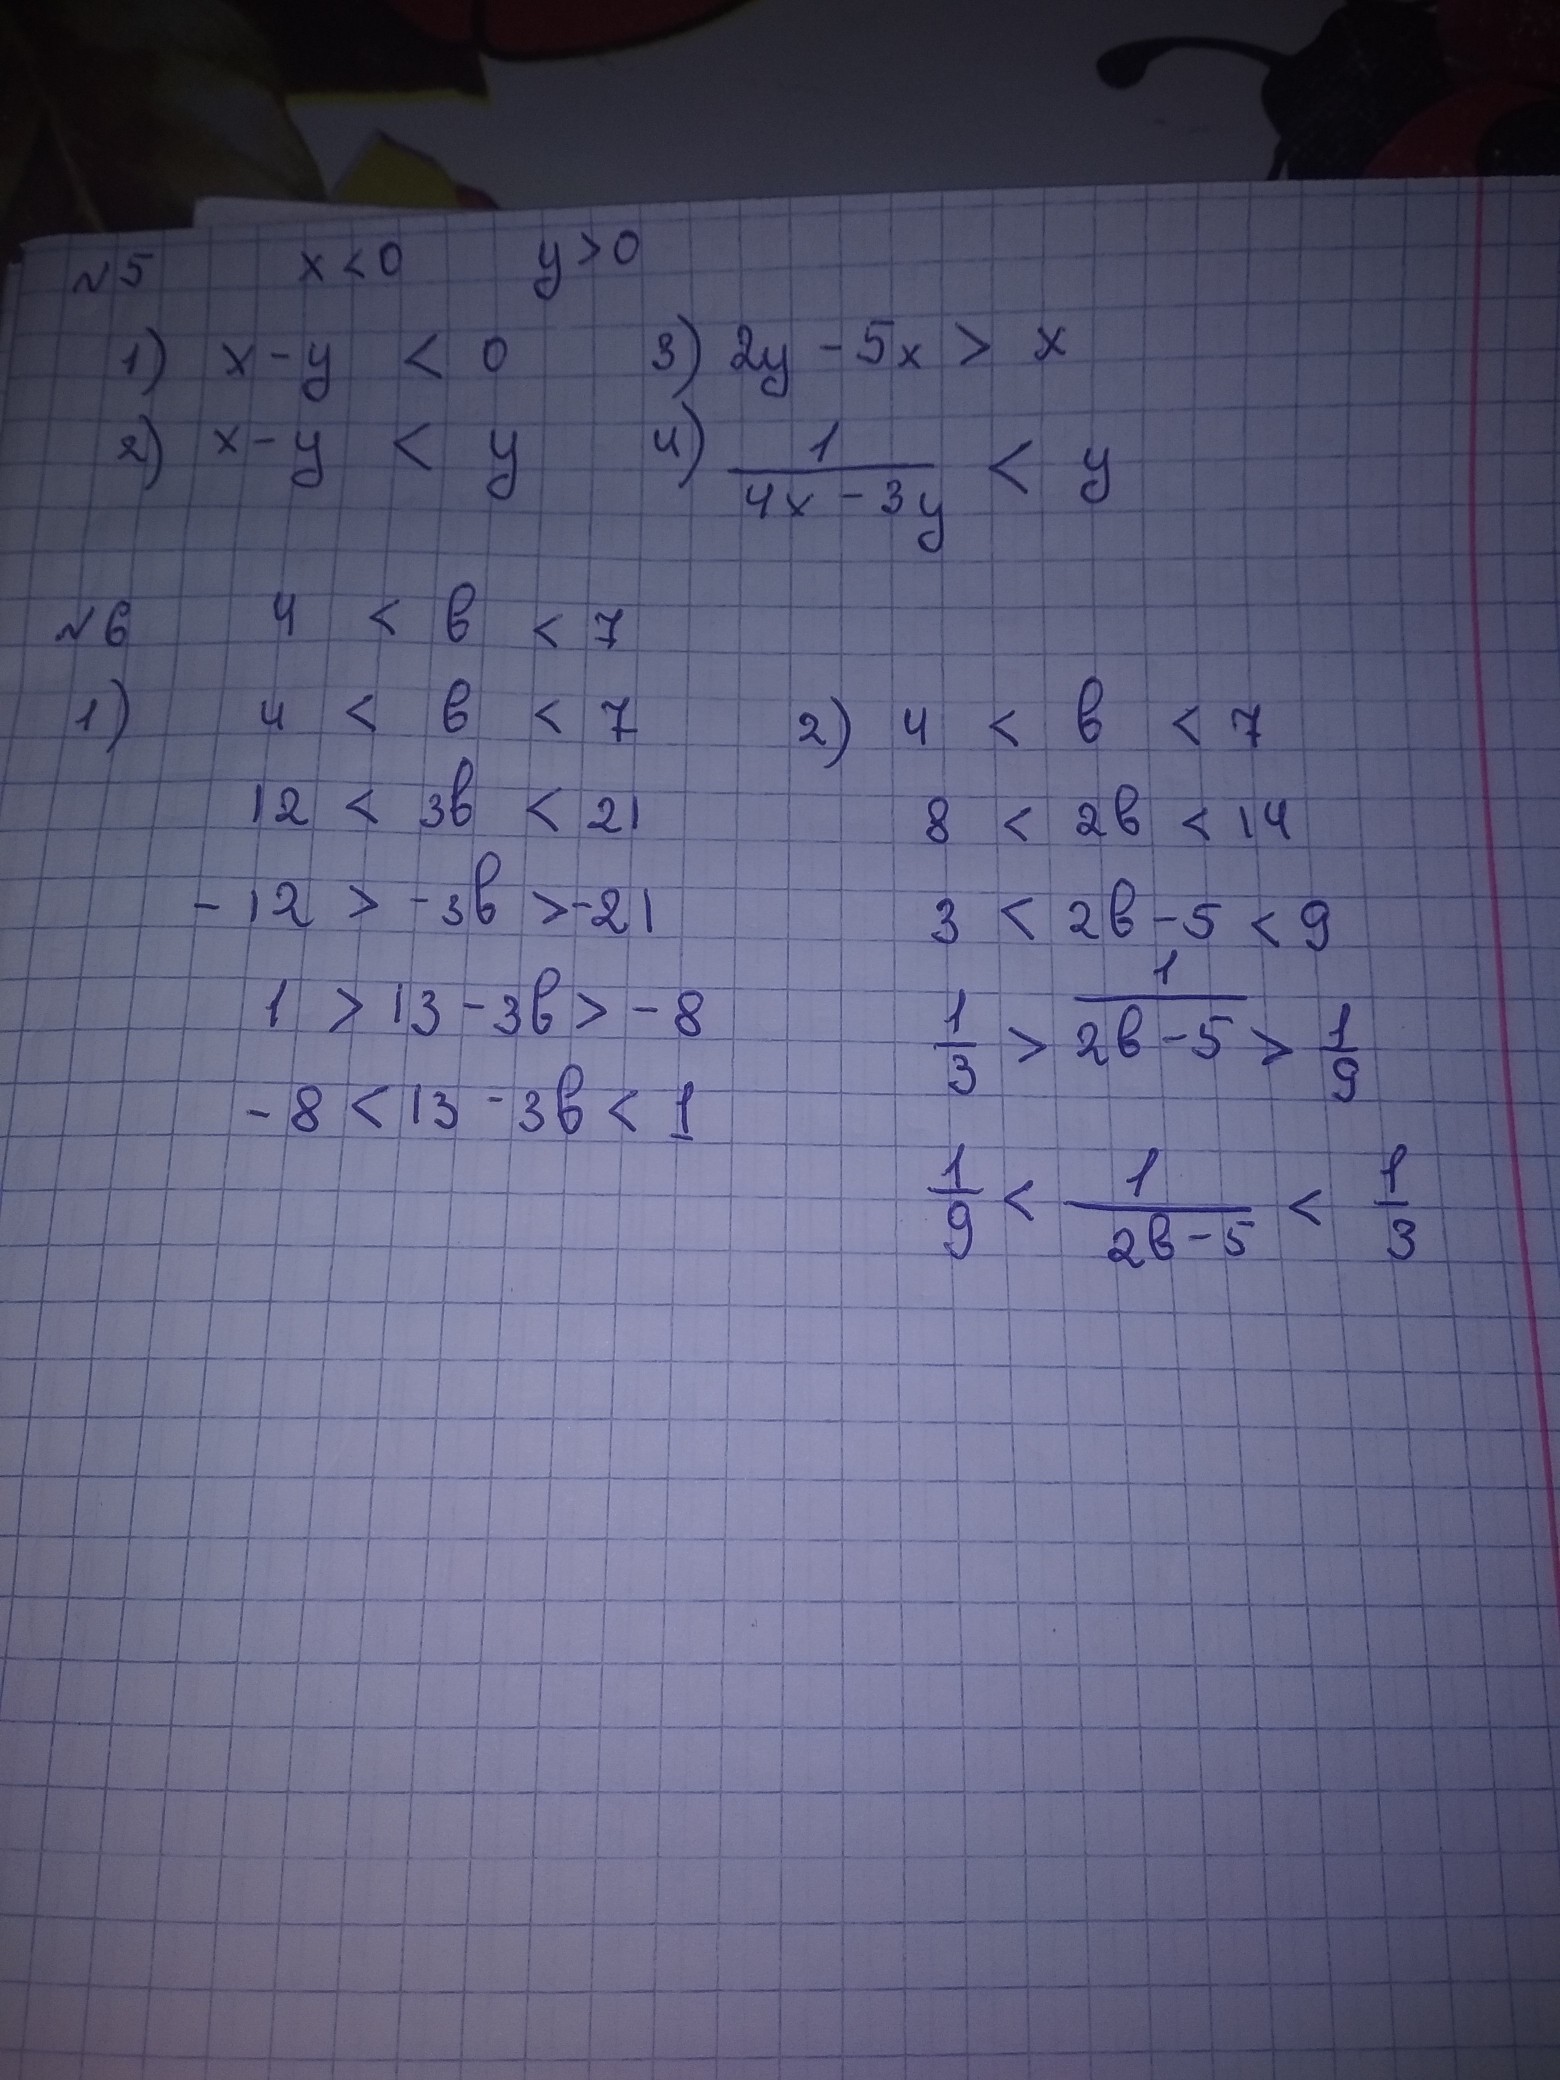 №5 x<0 y>0
1) x-y < 0 3) 2y-5x > x
2) x-y < y 4) 1/(4x-3y) < y
№6 4 < в < 7
1) 4 < в < 7 2) 4 < в < 7
12 < 3в < 21 8 < 2в < 14
-12 > -3в > -21 3 < 2в-5 < 9
1 > 13-3в > -8 1/3 > 1/(2в-5) > 1/9
-8 < 13-3в < 1 1/9 < 1/(2в-5) < 1/3